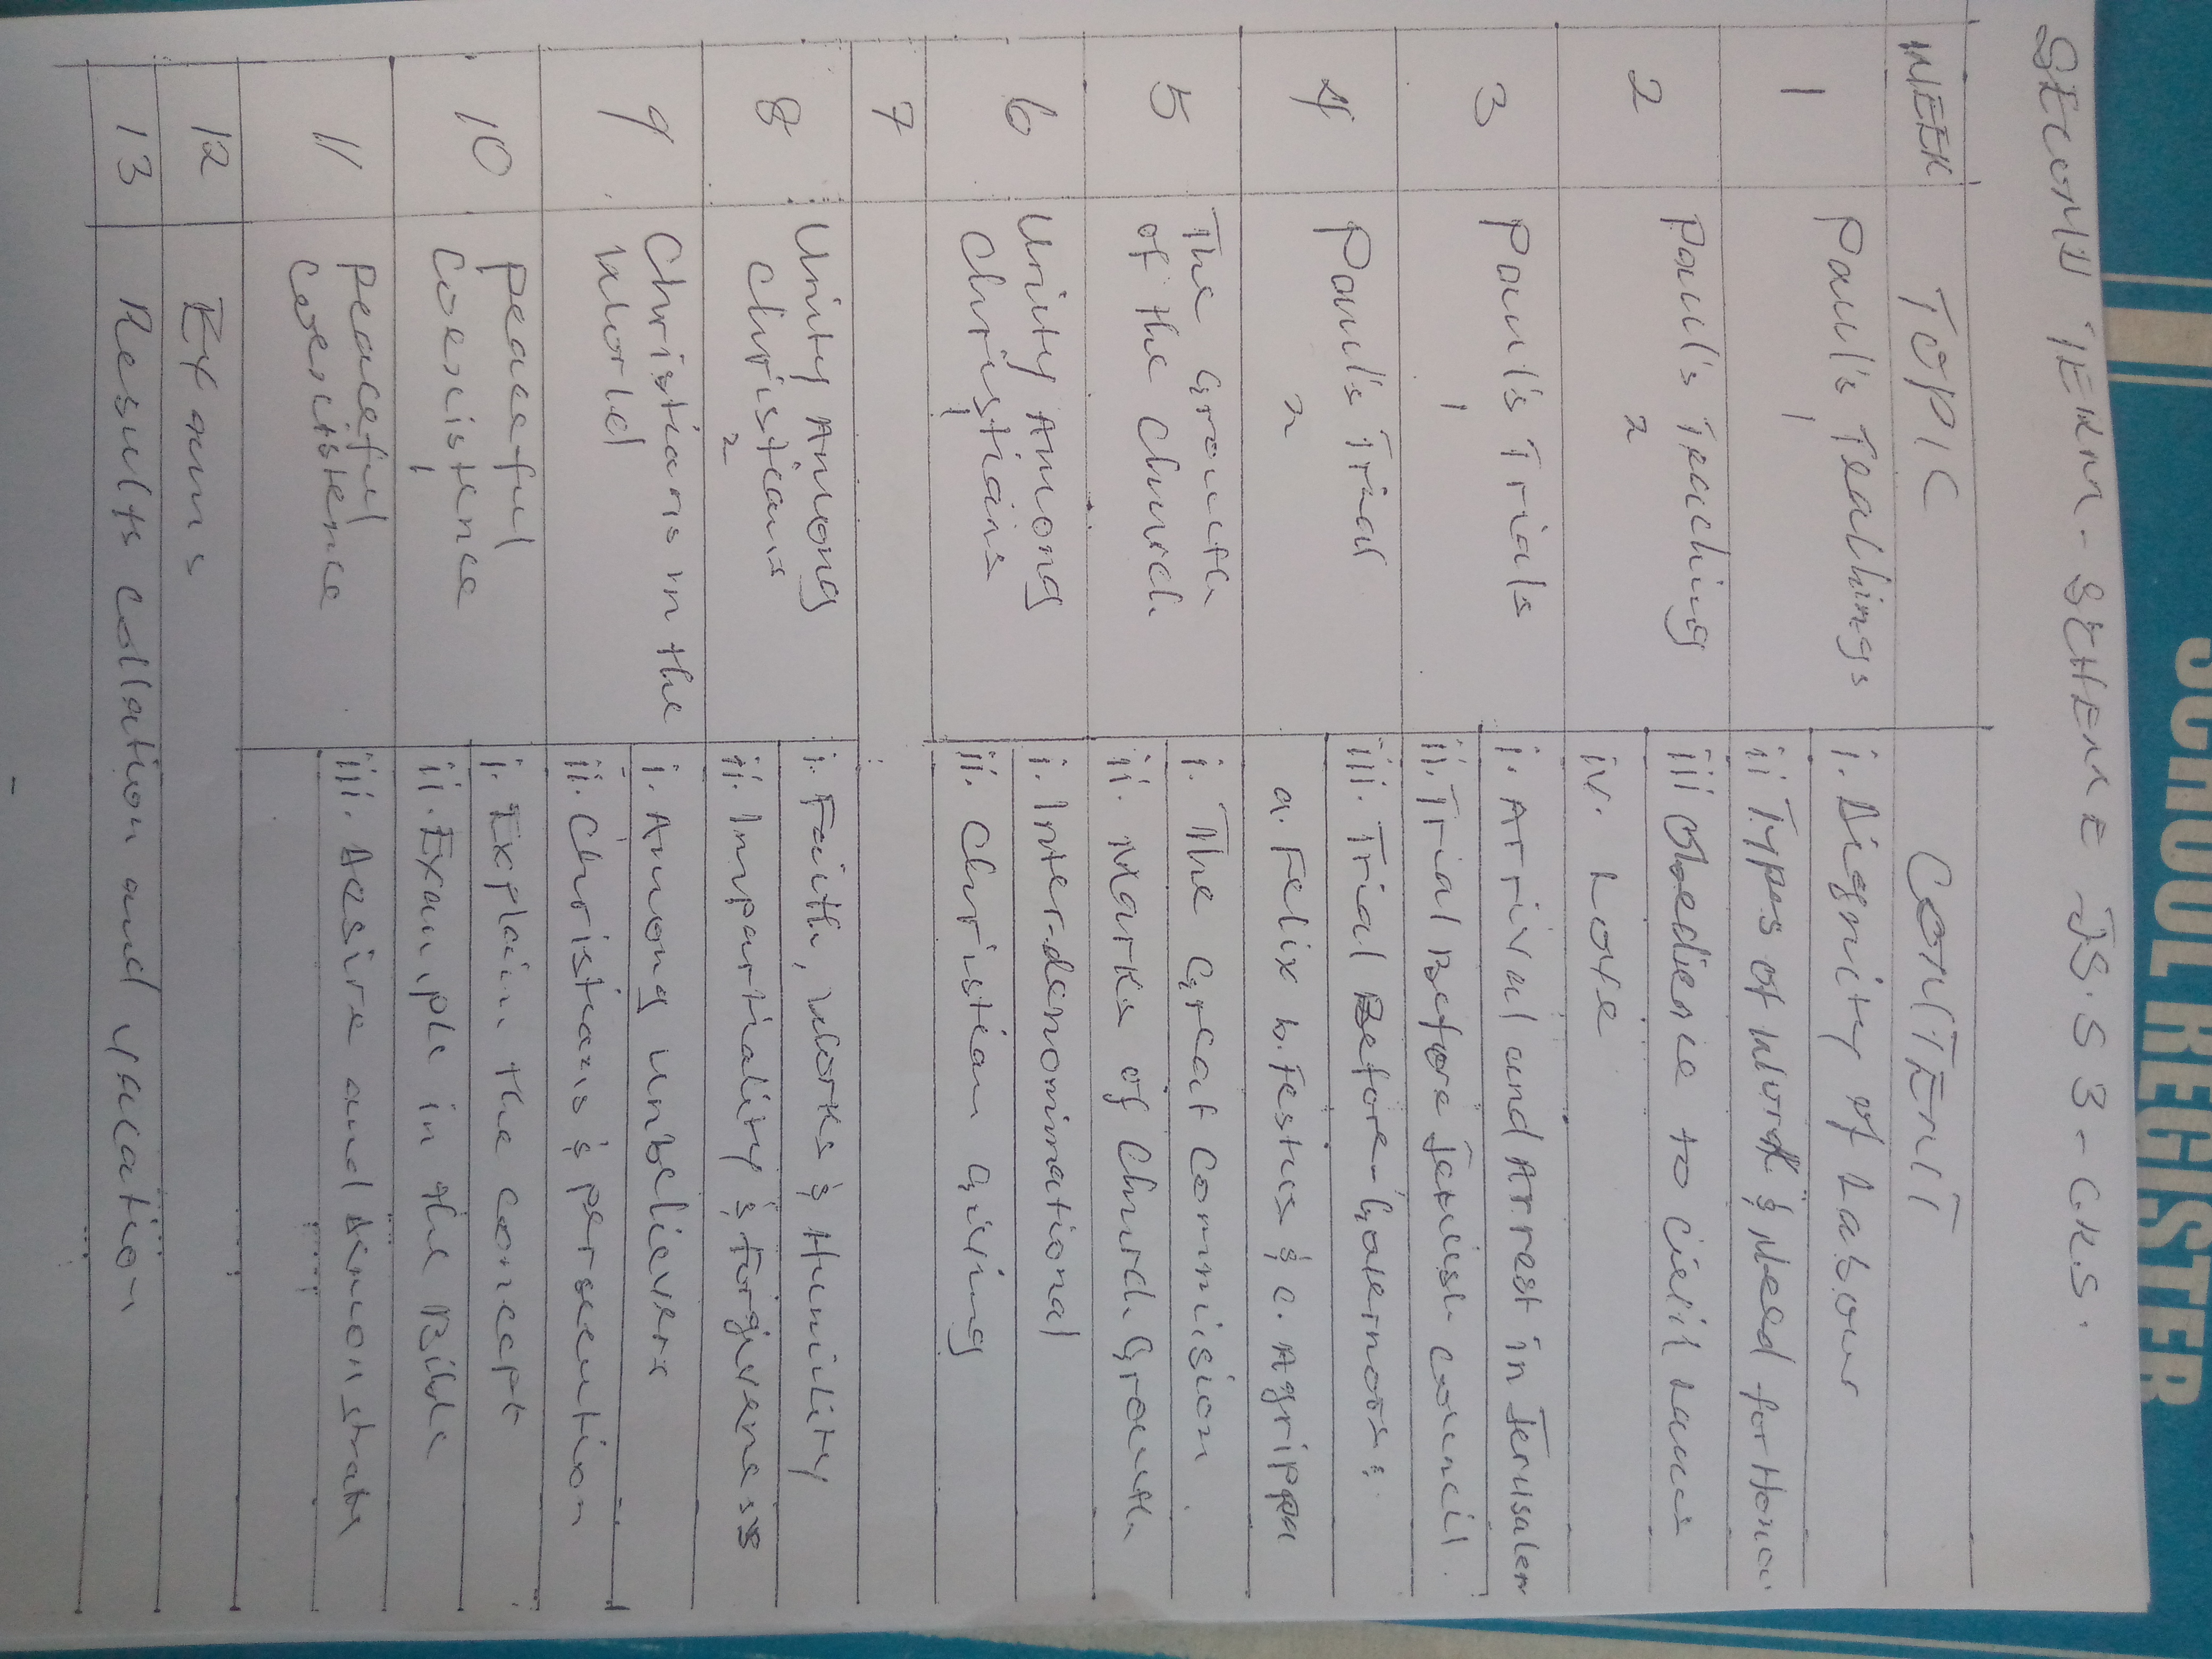 SECOND TERM - SCHEME JSS 3 - C.K.S.
WEEK TOPIC CONTENT
1 Paul's Teachings 1 i. Dignity of Labour
ii Types of Work & Need for Hone
2 Paul's Teaching 2 iii Obedience to Civil Laws
iv. Love
3 Paul's Trials 1 i. Arrival and Arrest in Jerusalem
ii. Trial Before Jewish Council.
4 Paul's Trial 2 iii. Trial Before-Governors:
a. Felix b. Festus & c. Agrippa
5 The Growth i. The Great Commission.
of the Church ii. Marks of Church Growth
6 Unity Among i. Inter-denominational
Christians 1 ii. Christian Giving
7
8 Unity Among i. Faith, Works & Humility
Christians 2 ii. Impartiality & Forgiveness
9 Christians in the i. Among Unbelievers
World ii. Christians & persecution
10 peaceful i. Explain the concept
Coexistence 1 ii. Example in the Bible
11 peaceful
coexistence iii. Desire and demonstrate
12 Exams
13 Results collation and vacation
SCHOOL REGISTER